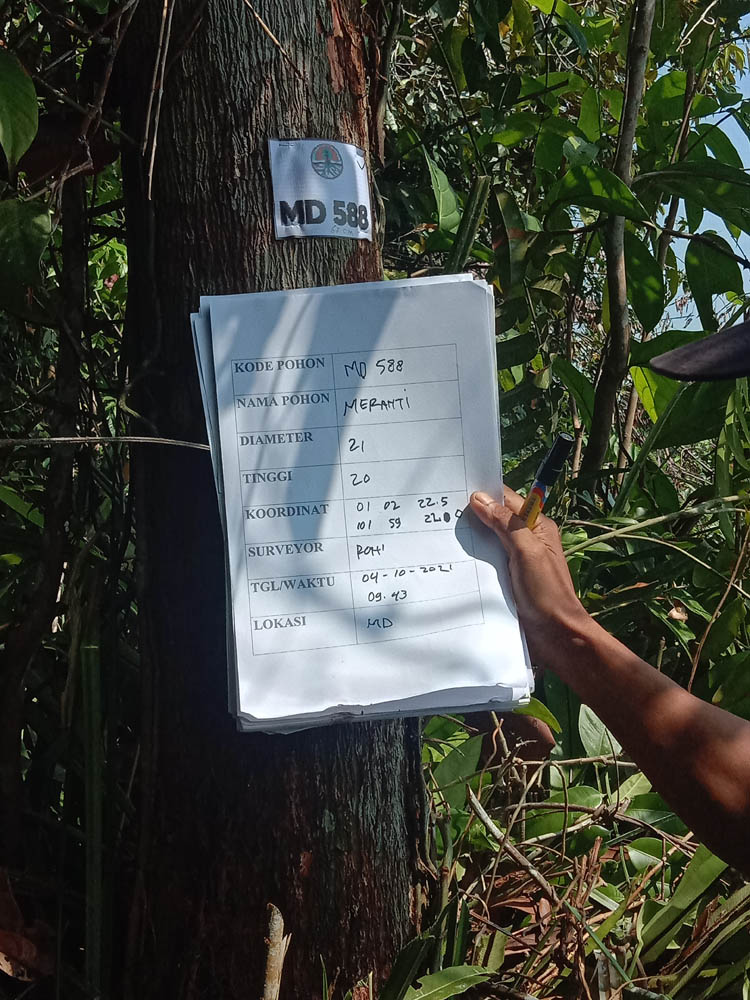 MD 588
KODE POHON MD 588
NAMA POHON MERANTI
DIAMETER 21
TINGGI 20
KOORDINAT 01 02 22.5
101 59 22.0
SURVEYOR ROHI
TGL/WAKTU 04-10-2021
09.43
LOKASI MD